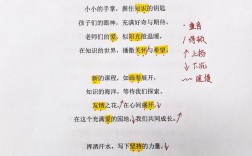 小小的手掌，握住知识的钥匙
孩子们的眼神，充满好奇与期待。
老师们的爱，似阳光般温暖，
在知识的世界，播撒关怀与希望。
·重音
∧停顿
↗上扬
↘下沉
～延慢
新的课程，如诗卷展开，
知识的海洋，等待我们探索。
友情之花，在心间盛开，
在这个充满爱的园地，我们共同成长。
挥洒汗水，写下坚持的力量。